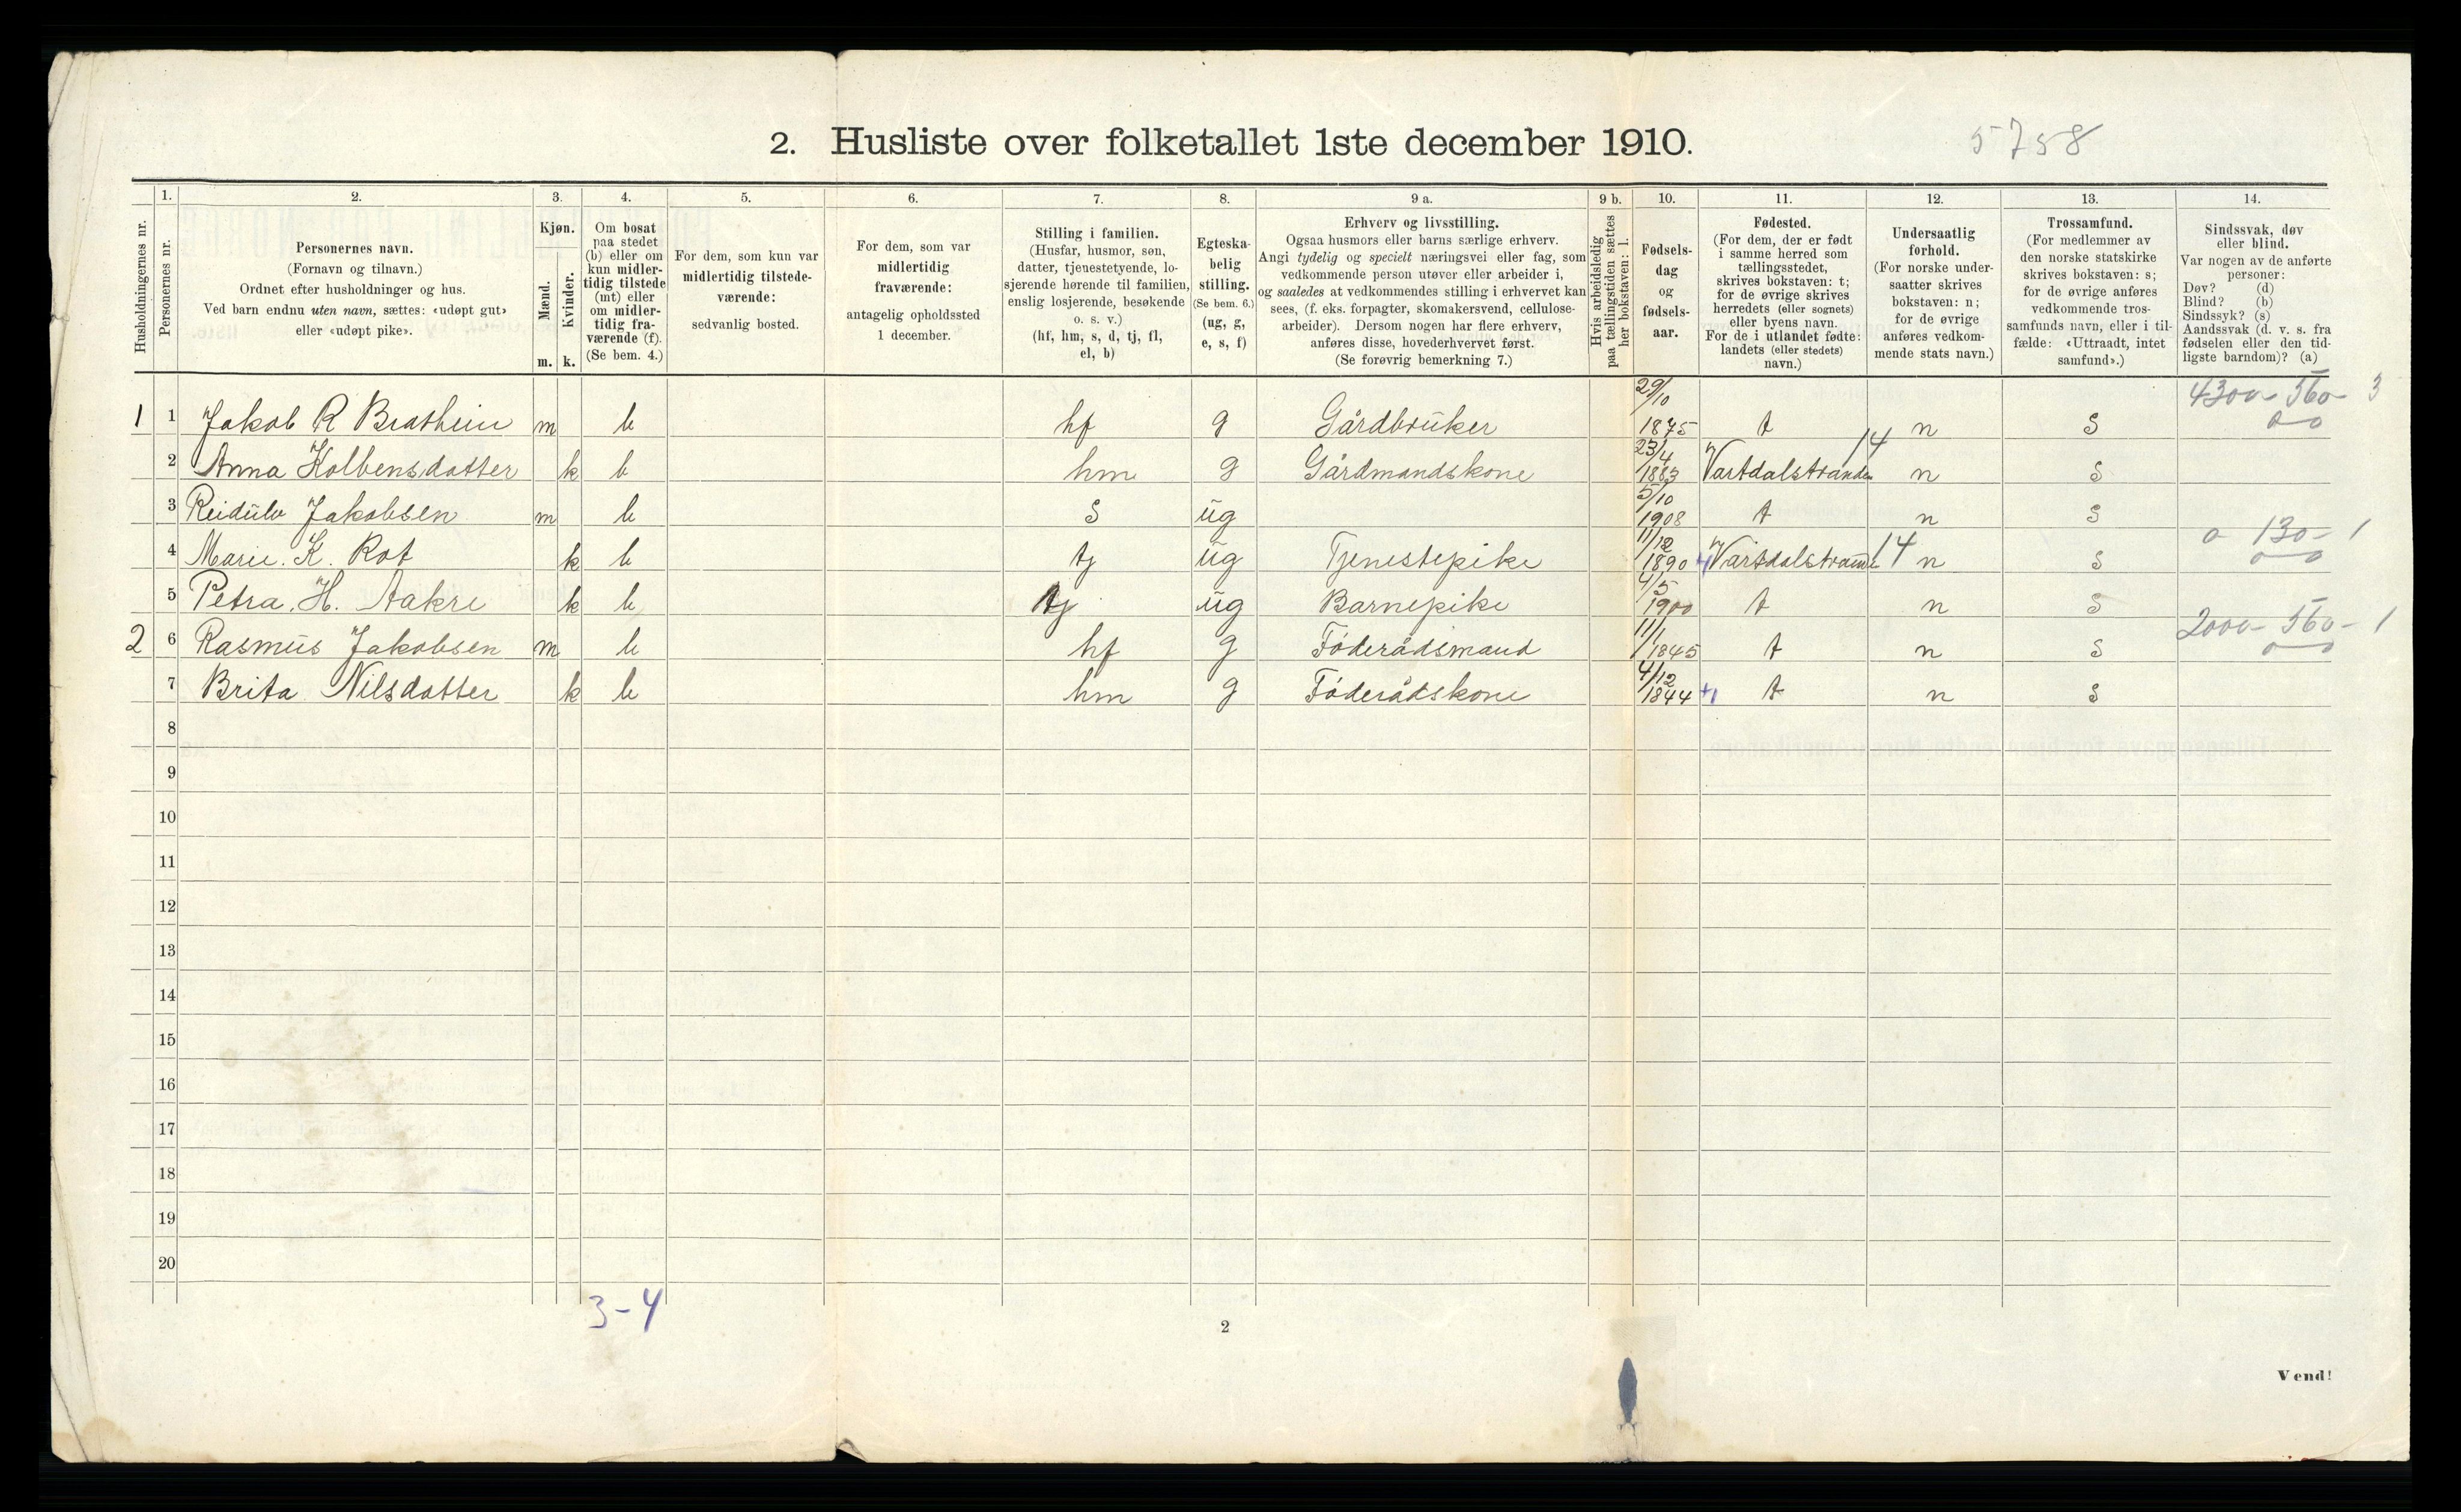 2. Husliste over folketallet 1ste december 1910.
5758
Husholdningernes nr.
1.
Personernes nr.
2.
Personernes navn.
(Fornavn og tilnavn.)
Ordnet efter husholdninger og hus.
Ved barn endnu uten navn, sættes: «udøpt gut»
eller «udøpt pike».
3.
Kjøn.
Mænd.
Kvinder.
m. k.
4.
Om bosat
paa stedet
(b) eller om
kun midler-
tidig tilstede
(mt) eller
om midler-
tidig fra-
værende (f).
(Se bem. 4.)
5.
For dem, som kun var
midlertidig tilstede-
værende:
sedvanlig bosted.
6.
For dem, som var
midlertidig
fraværende:
antagelig opholdssted
1 december.
7.
Stilling i familien.
(Husfar, husmor, søn,
datter, tjenestetyende, lo-
sjerende hørende til familien,
enslig losjerende, besøkende
o. s. v.)
(hf, hm, s, d, tj, fl,
el, b)
8.
Egteska-
belig
stilling.
(Se bem. 6.)
(ug, g,
e, s, f)
9 a.
Erhverv og livsstilling.
Ogsaa husmors eller barns særlige erhverv.
Angi tydelig og specielt næringsvei eller fag, som
vedkommende person utøver eller arbeider i,
og saaledes at vedkommendes stilling i erhvervet kan
sees, (f. eks. forpagter, skomakersvend, cellulose-
arbeider). Dersom nogen har flere erhverv,
anføres disse, hovederhvervet først.
(Se forøvrig bemerkning 7.)
9 b.
Hvis arbeidsledig
paa tællingstiden sættes
her bokstaven: l.
10.
Fødsels-
dag
og
fødsels-
aar.
11.
Fødested.
(For dem, der er født
i samme herred som
tællingsstedet,
skrives bokstaven: t;
for de øvrige skrives
herredets (eller sognets)
eller byens navn.
For de i utlandet fødte:
landets (eller stedets)
navn.)
12.
Undersaatlig
forhold.
(For norske under-
saatter skrives
bokstaven: n;
for de øvrige
anføres vedkom-
mende stats navn.)
13.
Trossamfund.
(For medlemmer av
den norske statskirke
skrives bokstaven: s;
for de øvrige anføres
vedkommende tros-
samfunds navn, eller i til-
fælde: «Uttraadt, intet
samfund».)
14.
Sindssvak, døv
eller blind.
Var nogen av de anførte
personer:
Døv? (d)
Blind? (b)
Sindssyk? (s)
Aandssvak (d. v. s. fra
fødselen eller den tid-
ligste barndom)? (a)
4300- 560- 3
1 1 Jakob R Brathein m b hf g Gårdbruker 29/10 1875 t n S
2 Anna Kolbensdatter k b hm g Gårdmandskone 23/4 1883 Vartdalstranden 14 n S
3 Reidulv Jakobsen m b S ug 5/10 1908 t n S
0 130- 1
4 Marie. K. Rot k b tj ug Tjenestepike 11/12 1890 14 n S
5 Petra. H. Aakre k b tj ug Barnepike 4/5 1900 t n S
2000- 560- 1
2 6 Rasmus Jakobsen m b hf g Føderådsmand 11/1 1845 t n S
7 Brita Nilsdatter k b hm g Føderådskone 4/12 1844 t n S
8
9
10
11
12
13
14
15
16
17
18
19
20
3-4
2
Vend!